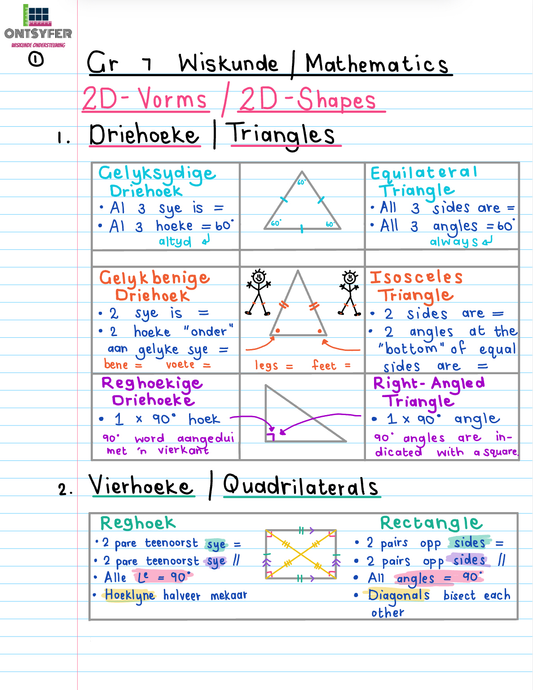 ONTSYFER
WISKUNDE ONDERSTEUNING
1
Gr 7 Wiskunde / Mathematics
2D-Vorms / 2D-Shapes
1. Driehoeke / Triangles
Gelyksydige
Driehoek
• Al 3 sye is =
• Al 3 hoeke = 60°
altyd
60°
60°
60°
Equilateral
Triangle
• All 3 sides are =
• All 3 angles = 60°
always
Gelykbenige
Driehoek
• 2 sye is =
• 2 hoeke "onder"
aan gelyke sye =
bene = voete =
legs = feet =
Isosceles
Triangle
• 2 sides are =
• 2 angles at the
"bottom" of equal
sides are =
Reghoekige
Driehoeke
• 1 x 90° hoek
90° word aangedui
met 'n vierkant
Right-Angled
Triangle
• 1 x 90° angle
90° angles are in-
dicated with a square
2. Vierhoeke / Quadrilaterals
Reghoek
• 2 pare teenoorst sye =
• 2 pare teenoorst sye //
• Alle Lᵉ = 90°
• Hoeklyne halveer mekaar
Rectangle
• 2 pairs opp sides =
• 2 pairs opp sides //
• All angles = 90°
• Diagonals bisect each
other